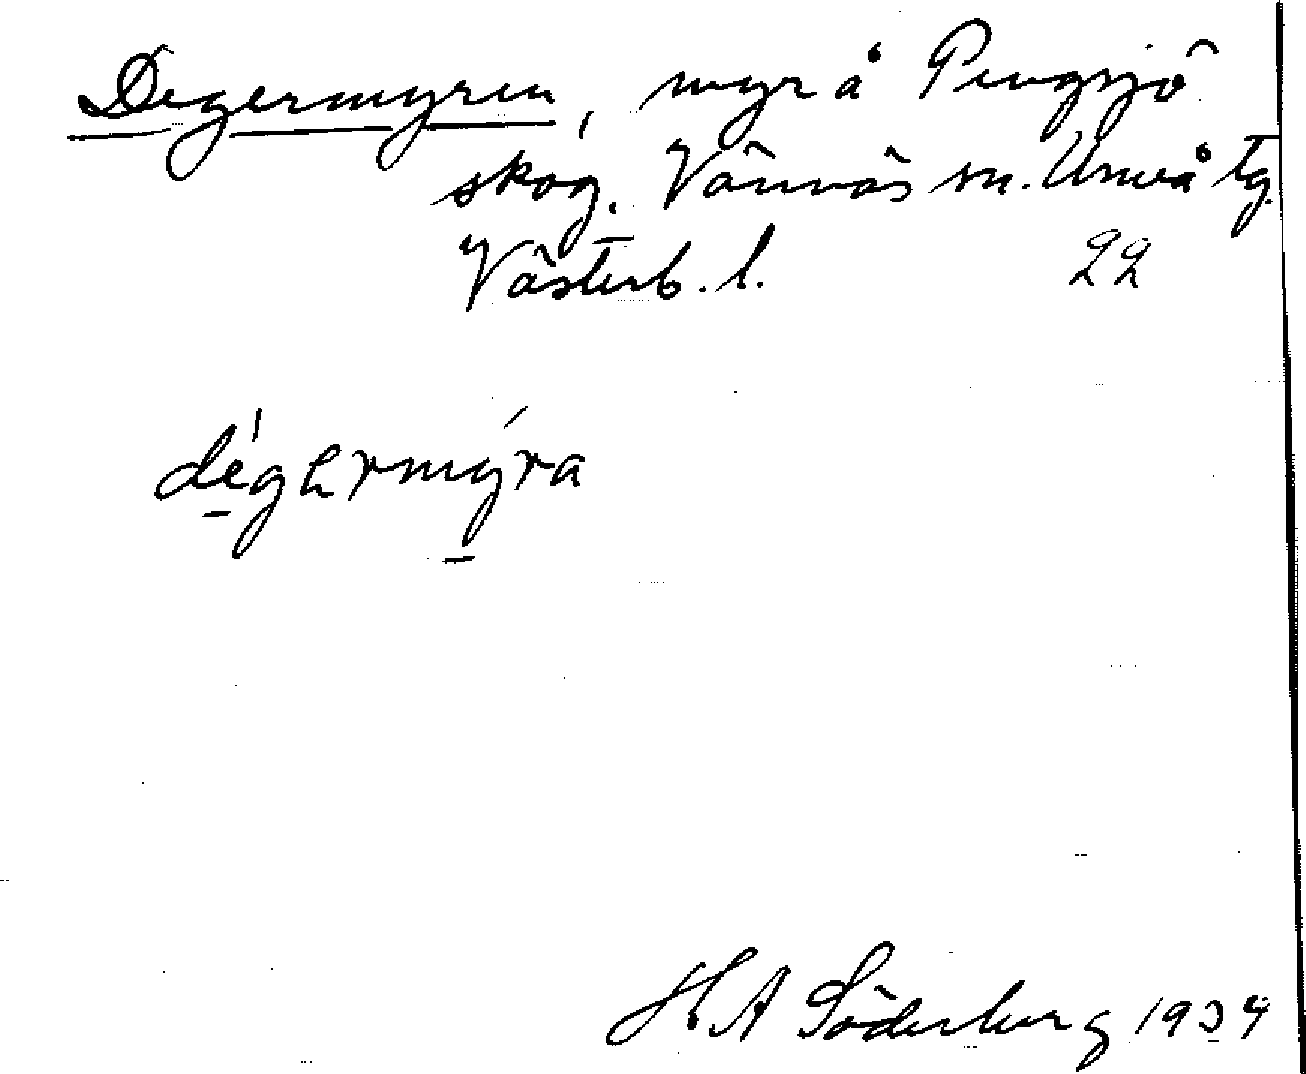 Degermyren, myr å Pengsjö
skog. Vännäs sn. Umeå tg.
Västerb. l. 22
H. A Söderberg 1934